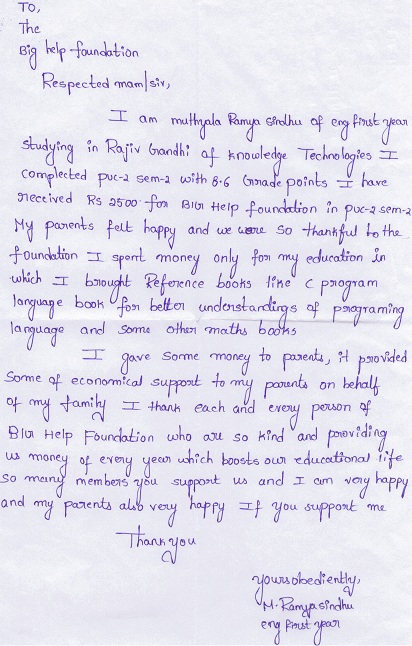 To,
The
Big help foundation
Respected mam/sir,
I am muthyala Ramya sindhu of eng first year
studying in Rajiv Grandhi of knowledge Technologies I
complected puc-2 sem-2 with 8.6 Grade points I have
received Rs 2500 for BIG Help foundation in puc-2 sem-2
My parents felt happy and we were so thankful to the
foundation I spent money only for my education in
which I brought Reference books like C program
language book for better understandings of programing
language and some other maths books
I gave some money to parents, it provided
some of economical support to my parents on behalf
of my family I thank each and every person of
BIG Help Foundation who are so kind and providing
us money of every year which boosts our educational life
so many members you support us and I am very happy
and my parents also very happy If you support me
Thank you
yours obediently,
M. Ramya sindhu
eng first year